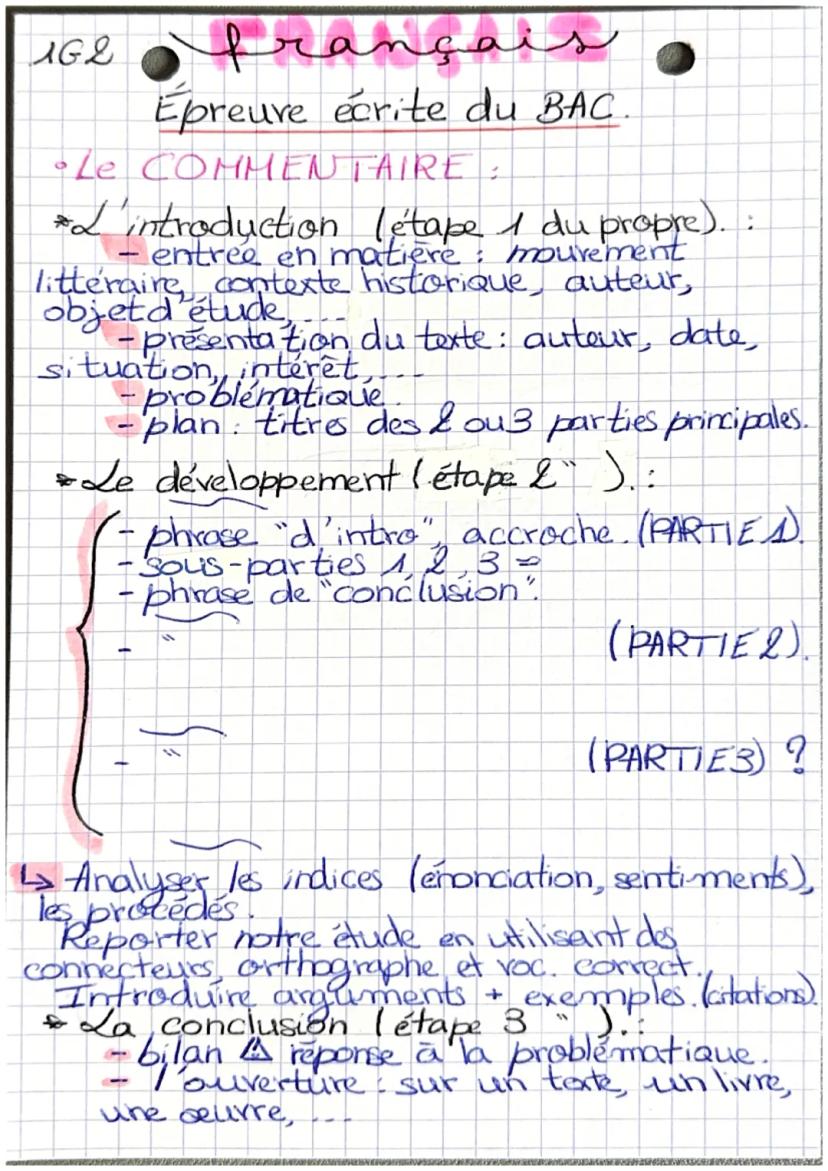 1G2 français
FRANÇAIS
Épreuve écrite du BAC.
• Le COMMENTAIRE :
* L'introduction (étape 1 du propre). :
- entrée en matière : mouvement
littéraire, contexte historique, auteur,
objet d'étude, ...
- présentation du texte : auteur, date,
situation, intérêt, ...
- problématique.
- plan : titres des 2 ou 3 parties principales.
* Le développement (étape 2 " ). :
- phrase "d'intro", accroche. (PARTIE 1).
- sous-parties 1, 2, 3 =
- phrase de "conclusion".
- " (PARTIE 2).
- " (PARTIE 3) ?
↳ Analyser les indices (énonciation, sentiments),
les procédés.
Reporter notre étude en utilisant des
connecteurs, orthographe et voc. correct.
Introduire arguments + exemples. (citations)
* La conclusion (étape 3 " ). :
- bilan ⚠ réponse à la problématique.
- l'ouverture : sur un texte, un livre,
une œuvre, ...